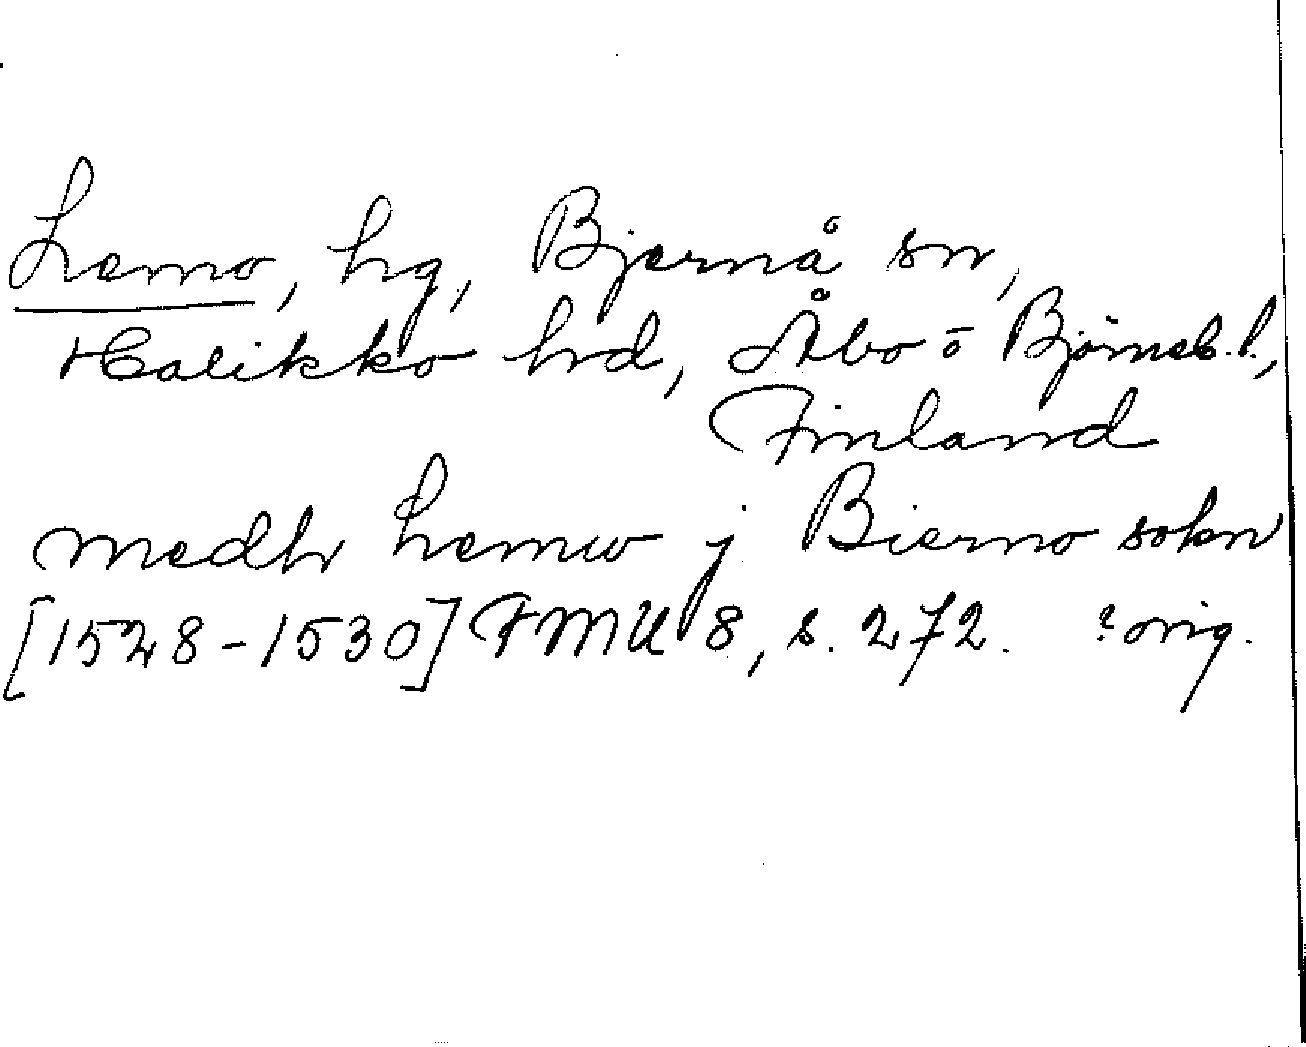 Lemo, hg, Bjernå sn,
Halikko hrd, Åbo o Björneb. l.,
Finland
medh Lemw j Bierno sokn
[1528-1530] FMU 8, s. 272. ? orig.